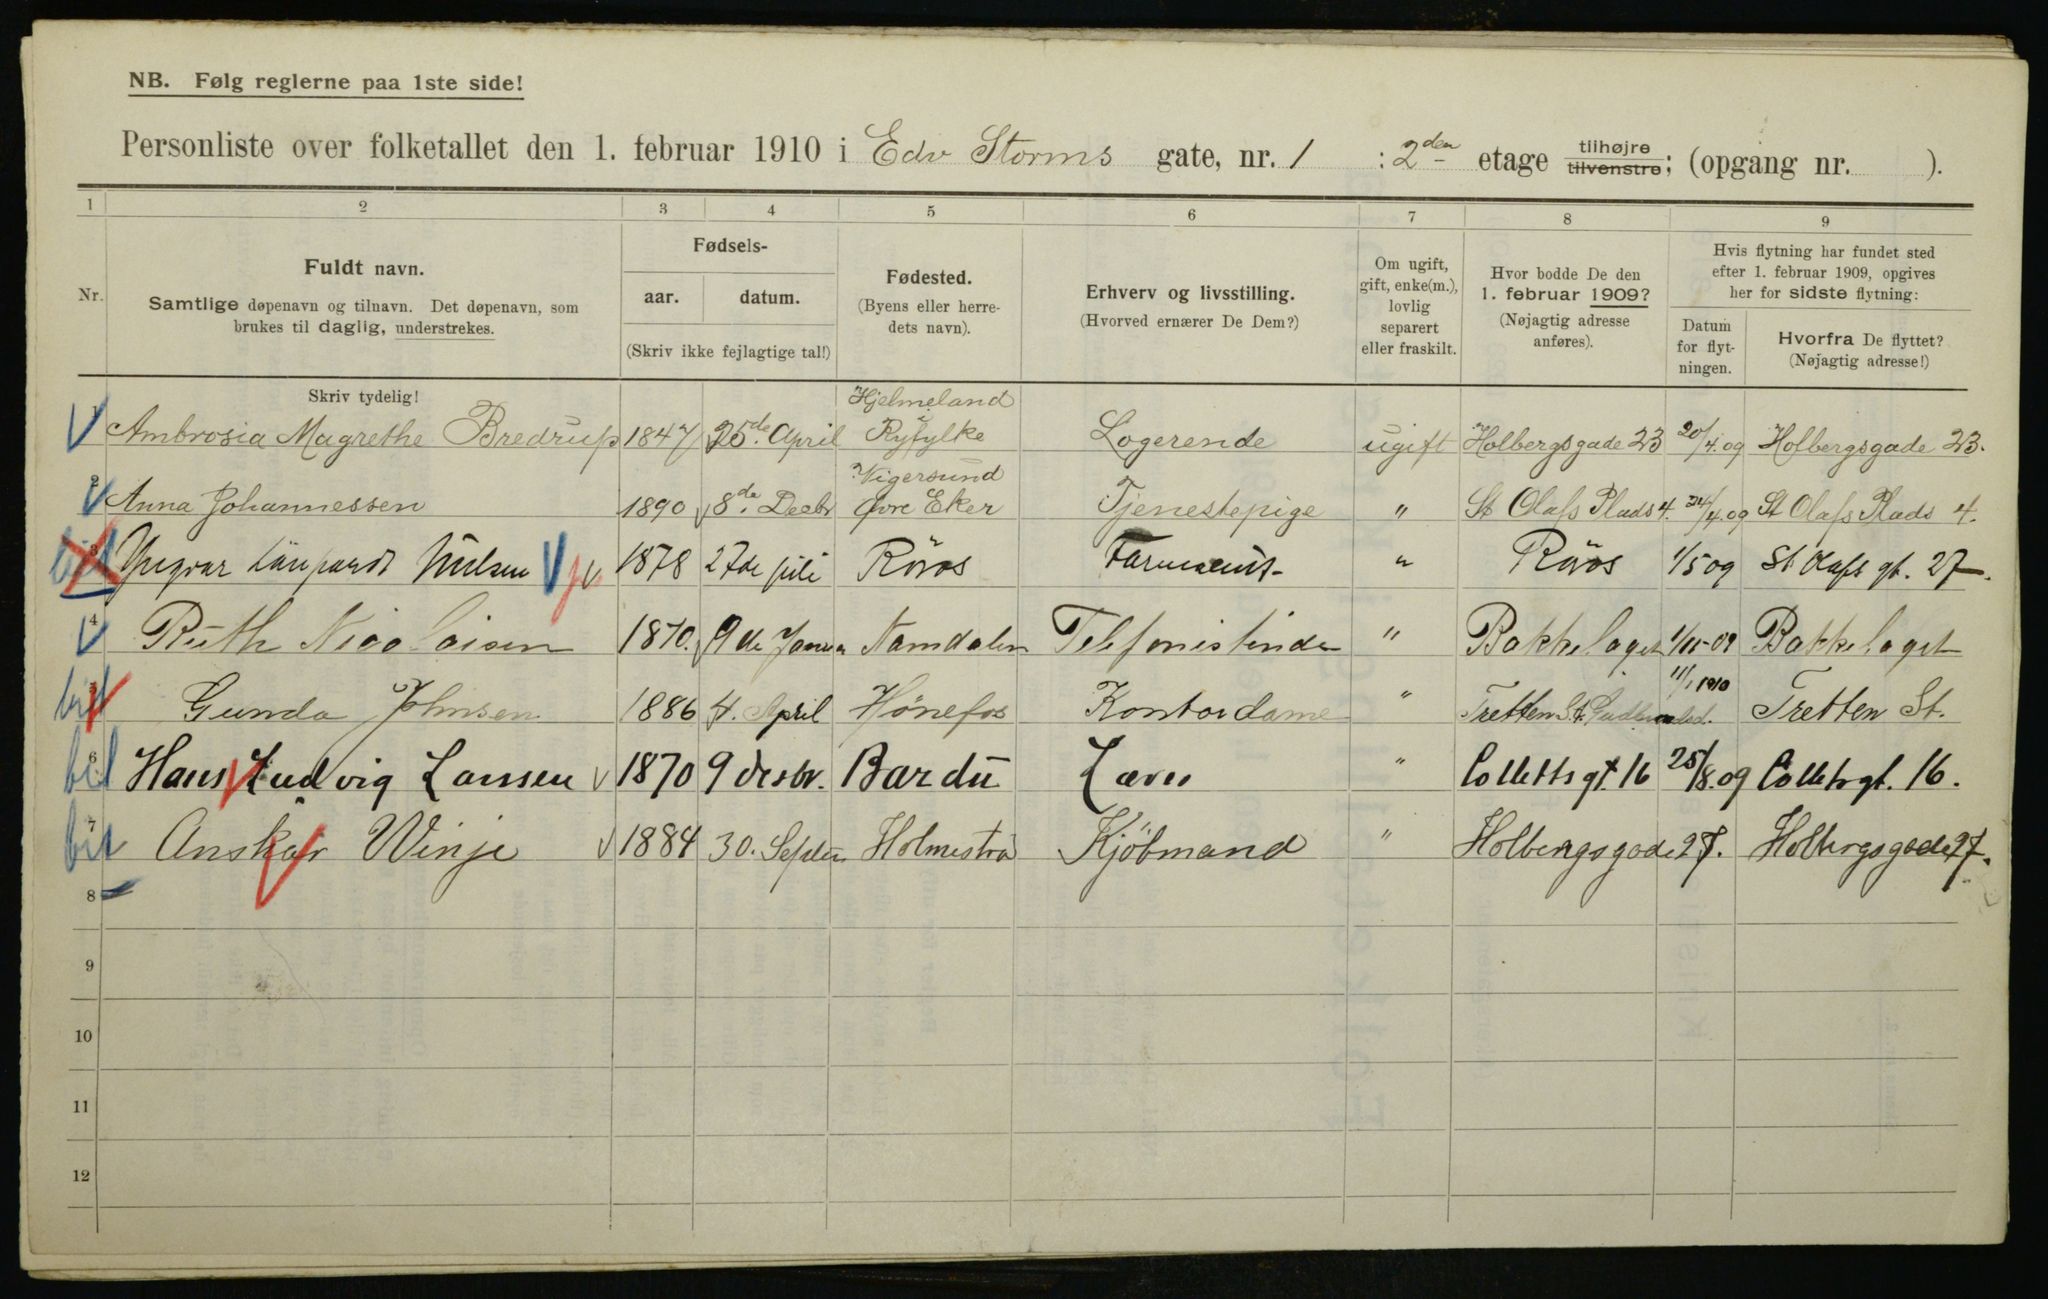 NB. Følg reglerne paa 1ste side!
Personliste over folketallet den 1. februar 1910 i Edv Storms gate, nr. 1 : 2den etage tilhøjre tilvenstre; (opgang nr. ).
1 2 3 4 5 6 7 8 9
Nr.
Fuldt navn.
Samtlige døpenavn og tilnavn. Det døpenavn, som
brukes til daglig, understrekes.
Fødsels-
aar. datum.
(Skriv ikke fejlagtige tal!)
Fødested.
(Byens eller herre-
dets navn).
Erhverv og livsstilling.
(Hvorved ernærer De Dem?)
Om ugift,
gift, enke(m.),
lovlig
separert
eller fraskilt.
Hvor bodde De den
1. februar 1909?
(Nøjagtig adresse
anføres).
Hvis flytning har fundet sted
efter 1. februar 1909, opgives
her for sidste flytning:
Datum
for flyt-
ningen.
Hvorfra De flyttet?
(Nøjagtig adresse!)
Skriv tydelig!
Hjelmeland
1 Ambrosia Magrethe Bredrup 1847 25de April Ryfylke Logerende ugift Holbergsgade 23 20/4.09 Holbergsgade 23.
Vigersund
2 Anna Johannessen 1890 8de Decbr Øvre Eker Tjenestepige " St Olafs Plads 4. 24/4.09 St Olafs Plads 4.
3 Yngvar Nilsen 1878 27de juli Röros Farmaceut " Röros 1/5 09 St Olafs gt. 27.
4 Ruth Nicolaisen 1870. 9de Januar Namdalen Telefonistinde " Bakkelaget 09 Bakkelaget
11/1 1910
bil 5 Gunda Johnsen 1886 4. April Hönefos Kontordame " Tretten St. Gudbrandsd. Tretten St.
bil 6 Hans Ludvig Larssen 1870 9 desbr. Bardu Lærer " Colletts gt. 16 25/8.09 Colletsgt. 16.
bil 7 Anskar Winje 1884 30. Septbr Holmestra Kjöbmand " Holbergsgade 27. Holbergsgade 27.
8
9
10
11
12